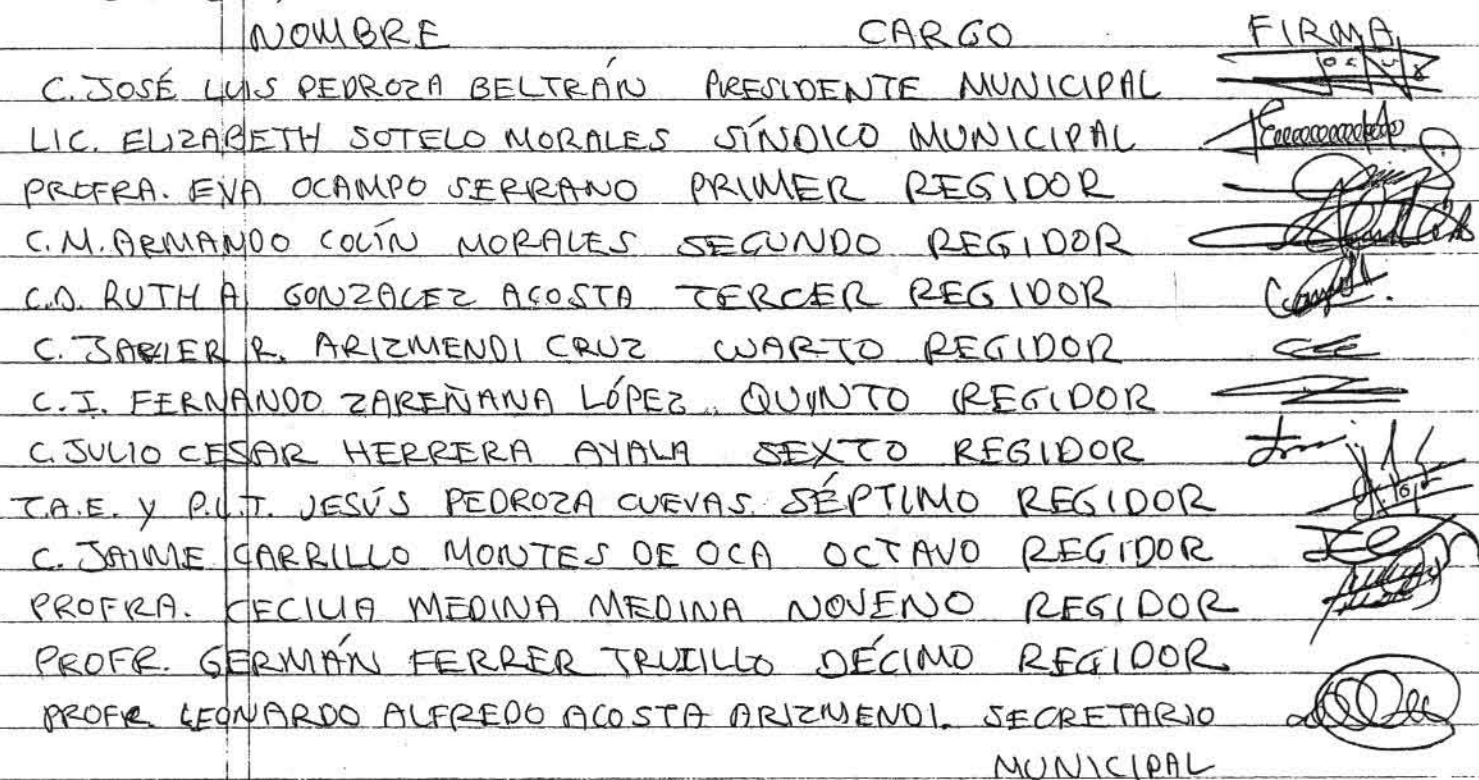 NOMBRE CARGO FIRMA
C. JOSÉ LUIS PEDROZA BELTRÁN PRESIDENTE MUNICIPAL
LIC. ELIZABETH SOTELO MORALES SÍNDICO MUNICIPAL
PROFRA. EVA OCAMPO SERRANO PRIMER REGIDOR
C.M. ARMANDO COLÍN MORALES SEGUNDO REGIDOR
C.D. RUTH A GONZALEZ ACOSTA TERCER REGIDOR
C. JAVIER R. ARIZMENDI CRUZ CUARTO REGIDOR
C.I. FERNANDO ZAREÑANA LÓPEZ QUINTO REGIDOR
C. JULIO CESAR HERRERA AYALA SEXTO REGIDOR
T.A.E. Y P.L.T. JESÚS PEDROZA CUEVAS. SÉPTIMO REGIDOR
C. JAIME CARRILLO MONTES DE OCA OCTAVO REGIDOR
PROFRA. CECILIA MEDINA MEDINA NOVENO REGIDOR
PROFR. GERMÁN FERRER TRUJILLO DÉCIMO REGIDOR
PROFR. LEONARDO ALFREDO ACOSTA ARIZMENDI. SECRETARIO
MUNICIPAL